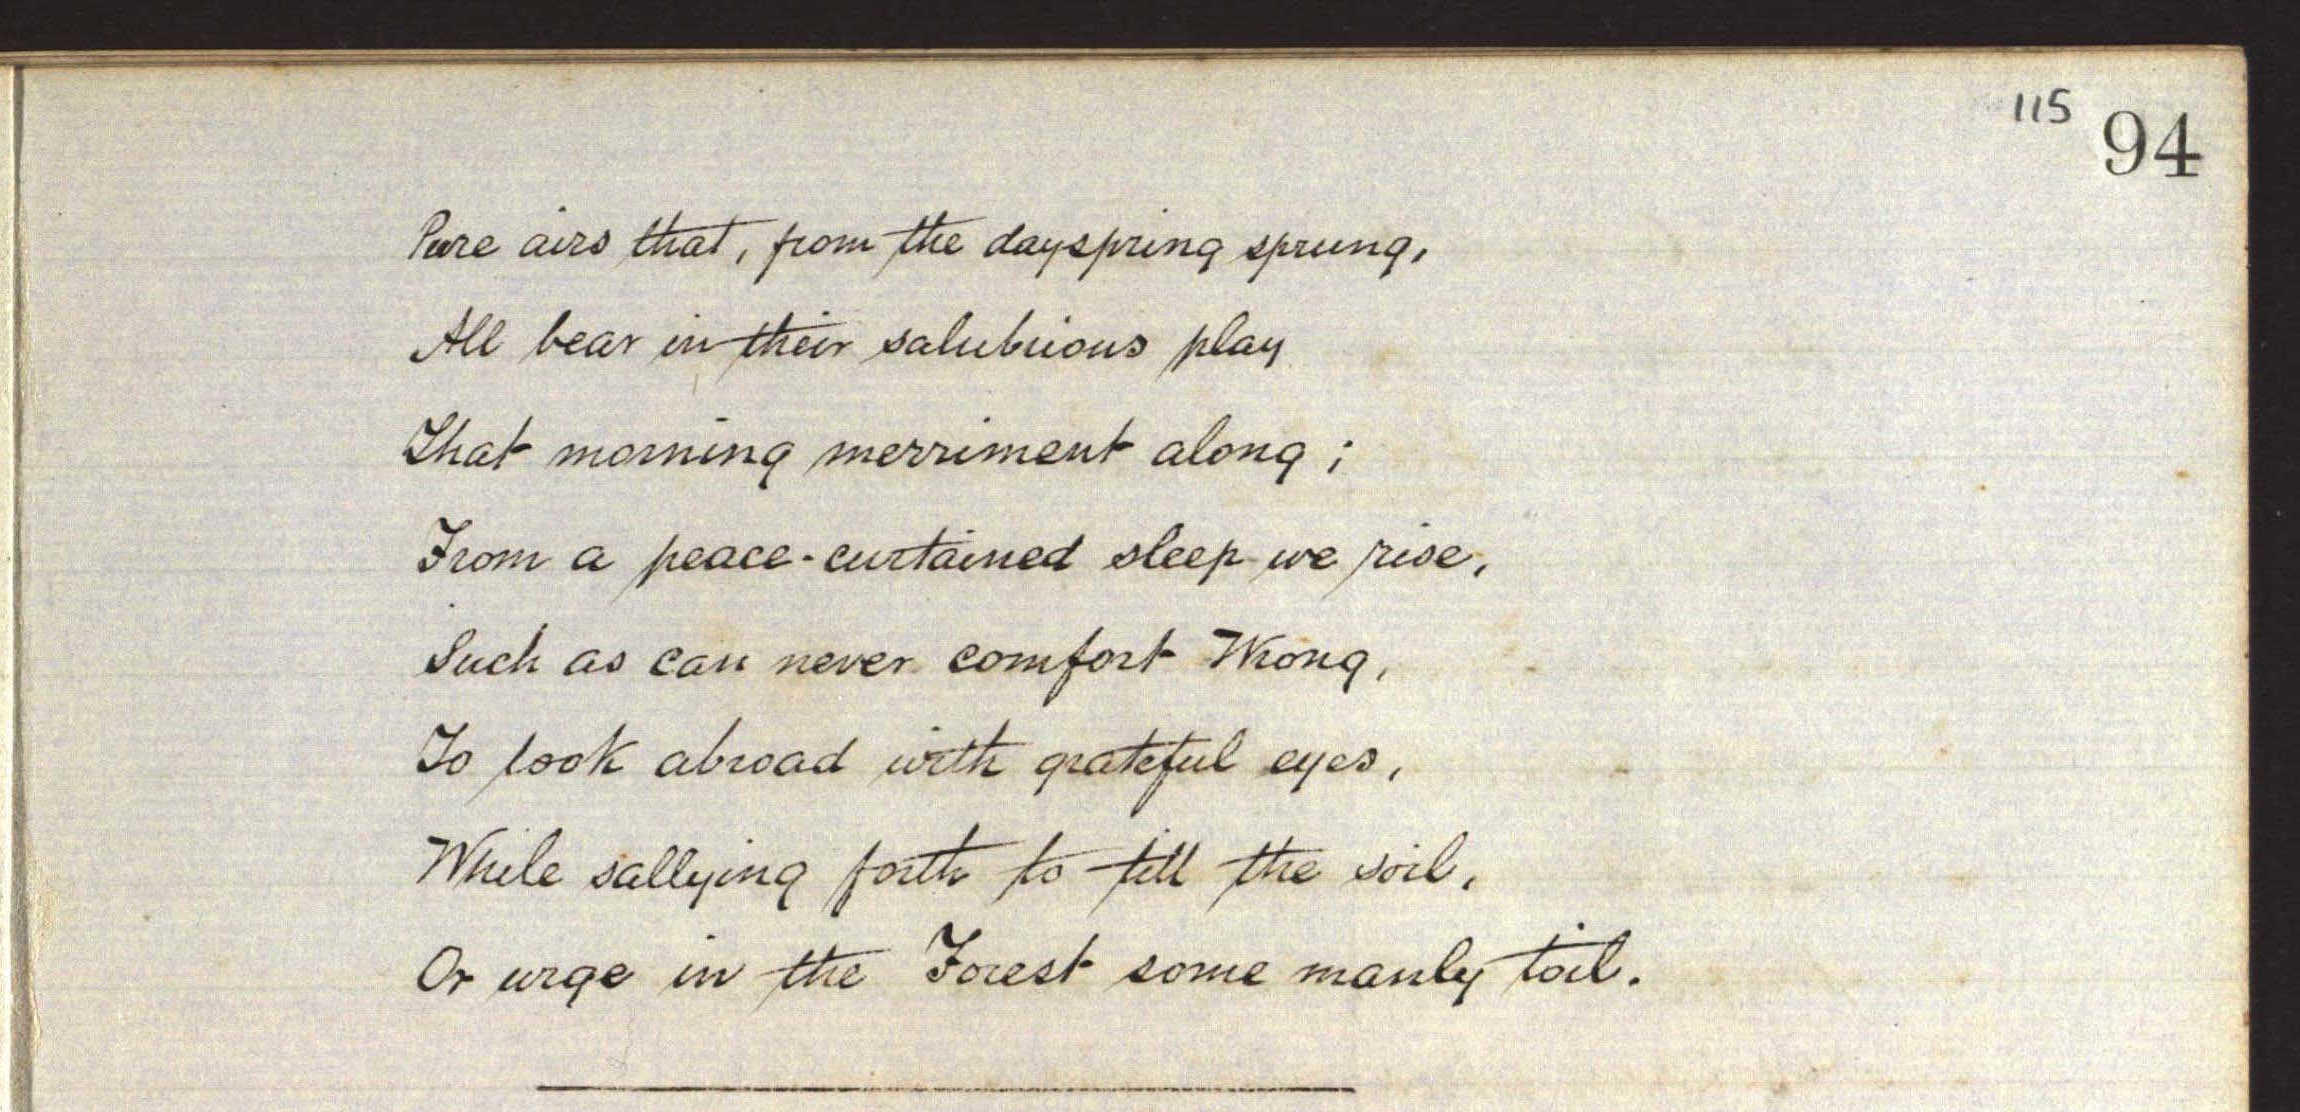 115 94
Pure airs that, from the dayspring sprung,
All bear in their salubrious play
That morning merriment along;
From a peace-curtained sleep we rise,
Such as can never comfort Wrong,
To look abroad with grateful eyes,
While sallying forth to till the soil,
Or urge in the Forest some manly toil.